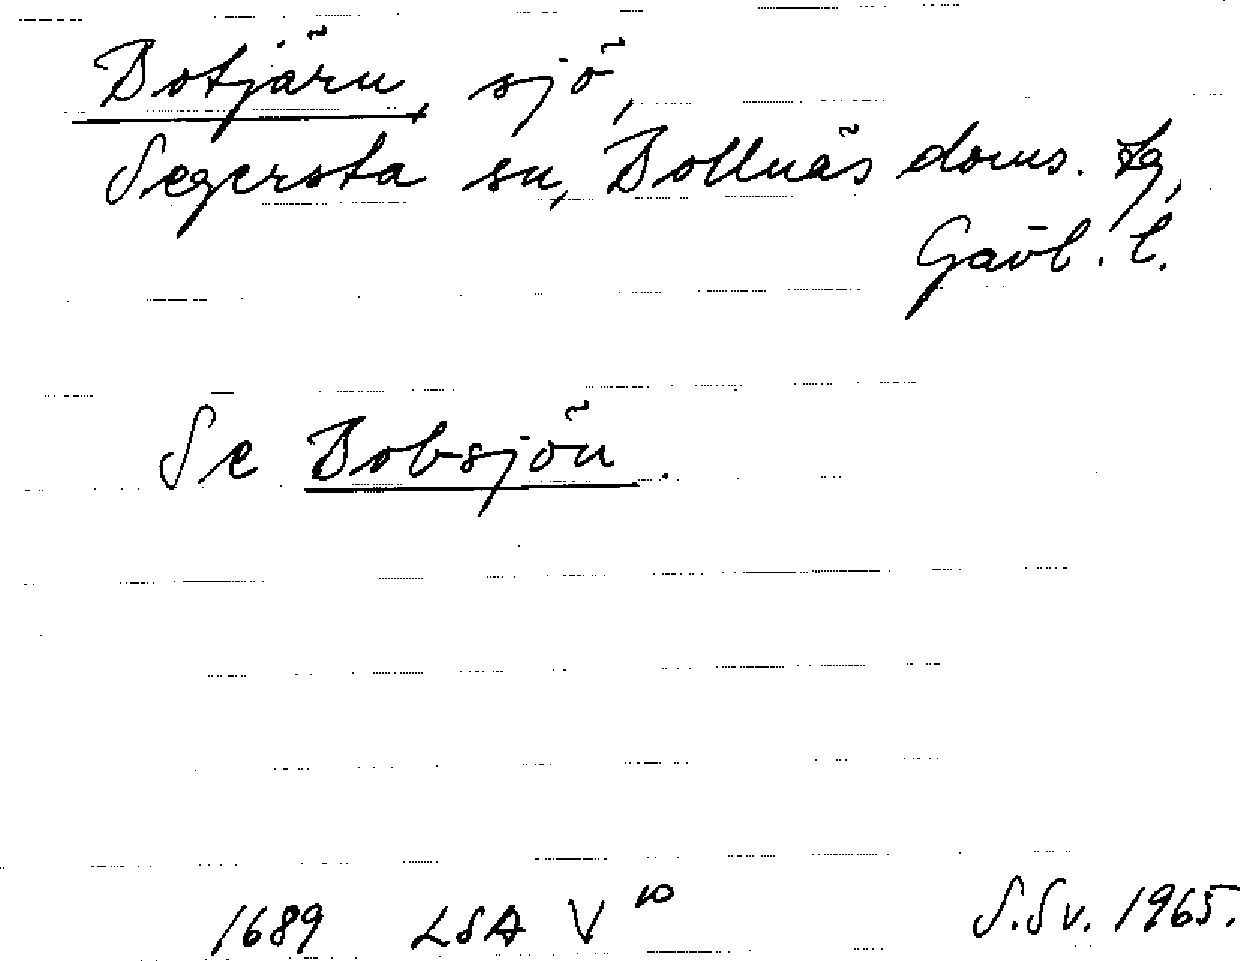 Botjärn, sjö,
Segersta sn, Bollnäs doms. tg,
Gävl. l.
Se Bobsjön.
1689 LSA V 10 S.Sv. 1965.